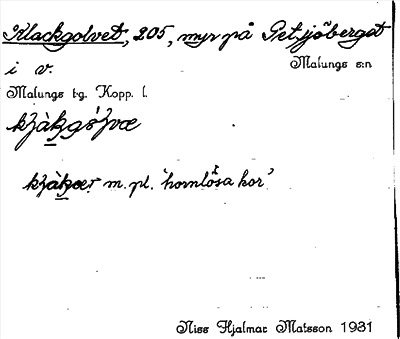 Klackgolvet, 205, myr på Petjöberget
i v.
Malungs s:n
Malungs t:g. Kopp. l.
m. pl. 'hornlösa kor'
Niss Hjalmar Matsson 1931